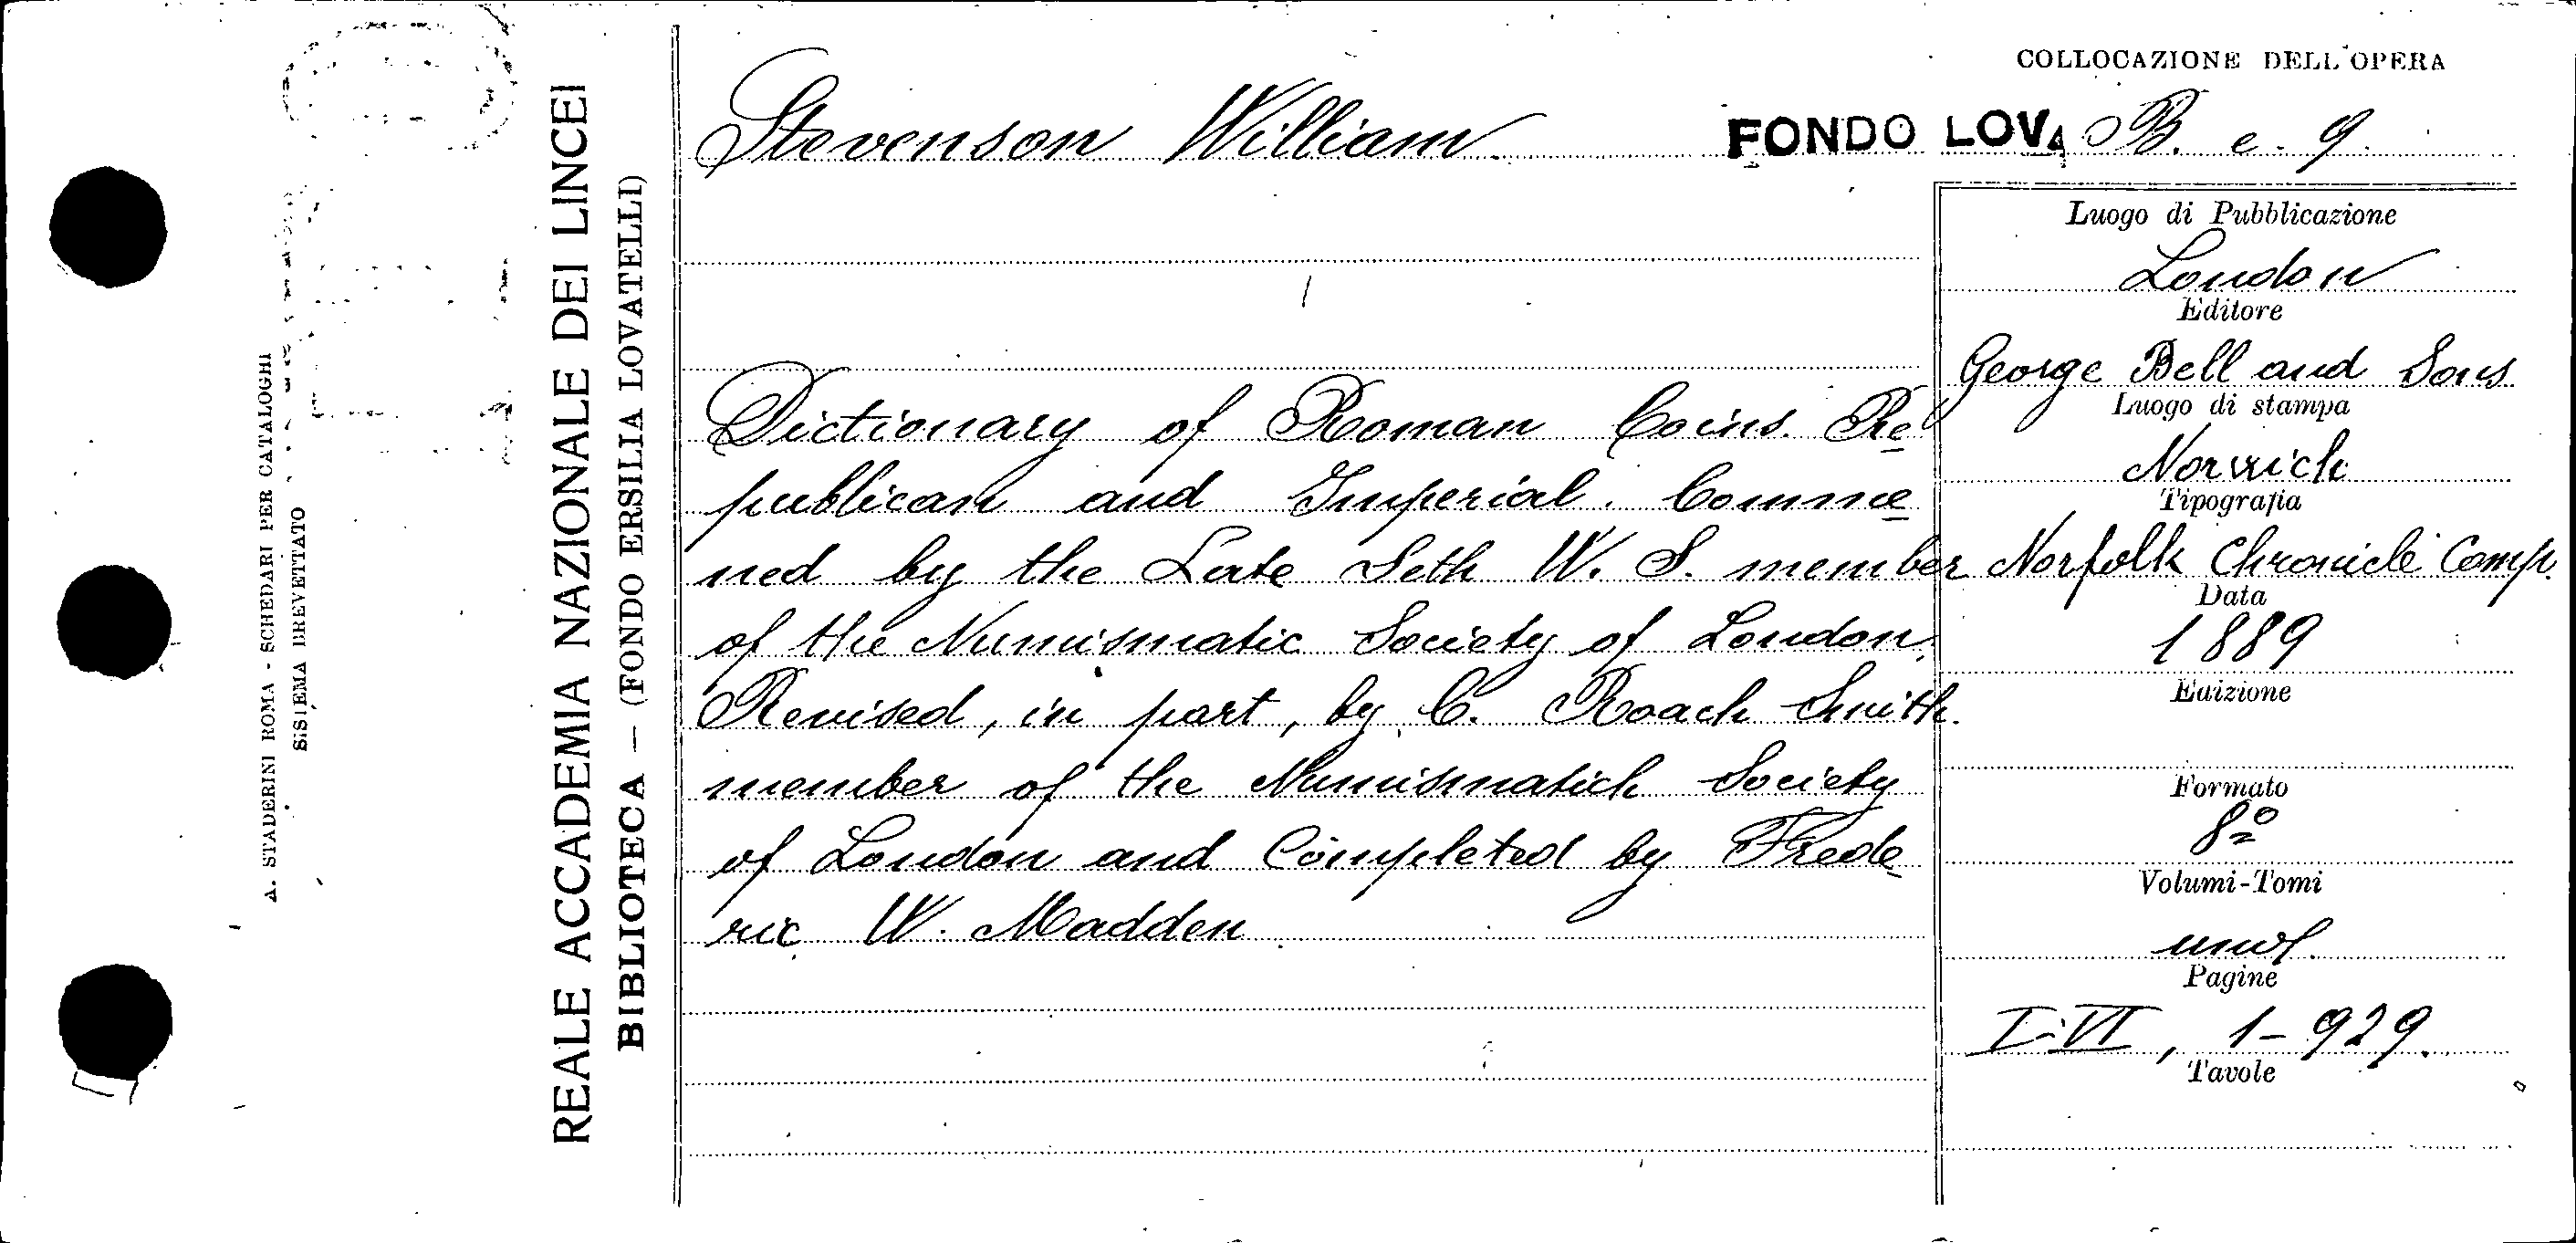 COLLOCAZIONE DELL'OPERA
Stevenson William
FONDO LOVA B. e. 9.
REALE ACCADEMIA NAZIONALE DEI LINCEI
BIBLIOTECA — (FONDO ERSILIA LOVATELLI)
A. STADERINI ROMA - SCHEDARI PER CATALOGHI
SISTEMA BREVETTATO
Dictionary of Roman Coins. Re
publican and Imperial. Comme
ned by the Late Seth W. S. member
of the Numismatic Society of London.
Revised, in part, by C. Roach Smith.
member of the Numismatich Society
of London and Completed by Frede
ric W. Madden
Luogo di Pubblicazione
London
Editore
George Bell and Sons
Luogo di stampa
Norwich
Tipografia
Norfolk Chronicle Comp.
Data
1889
Edizione
Formato
8º
Volumi-Tomi
unof.
Pagine
I-VI, 1-929.
Tavole